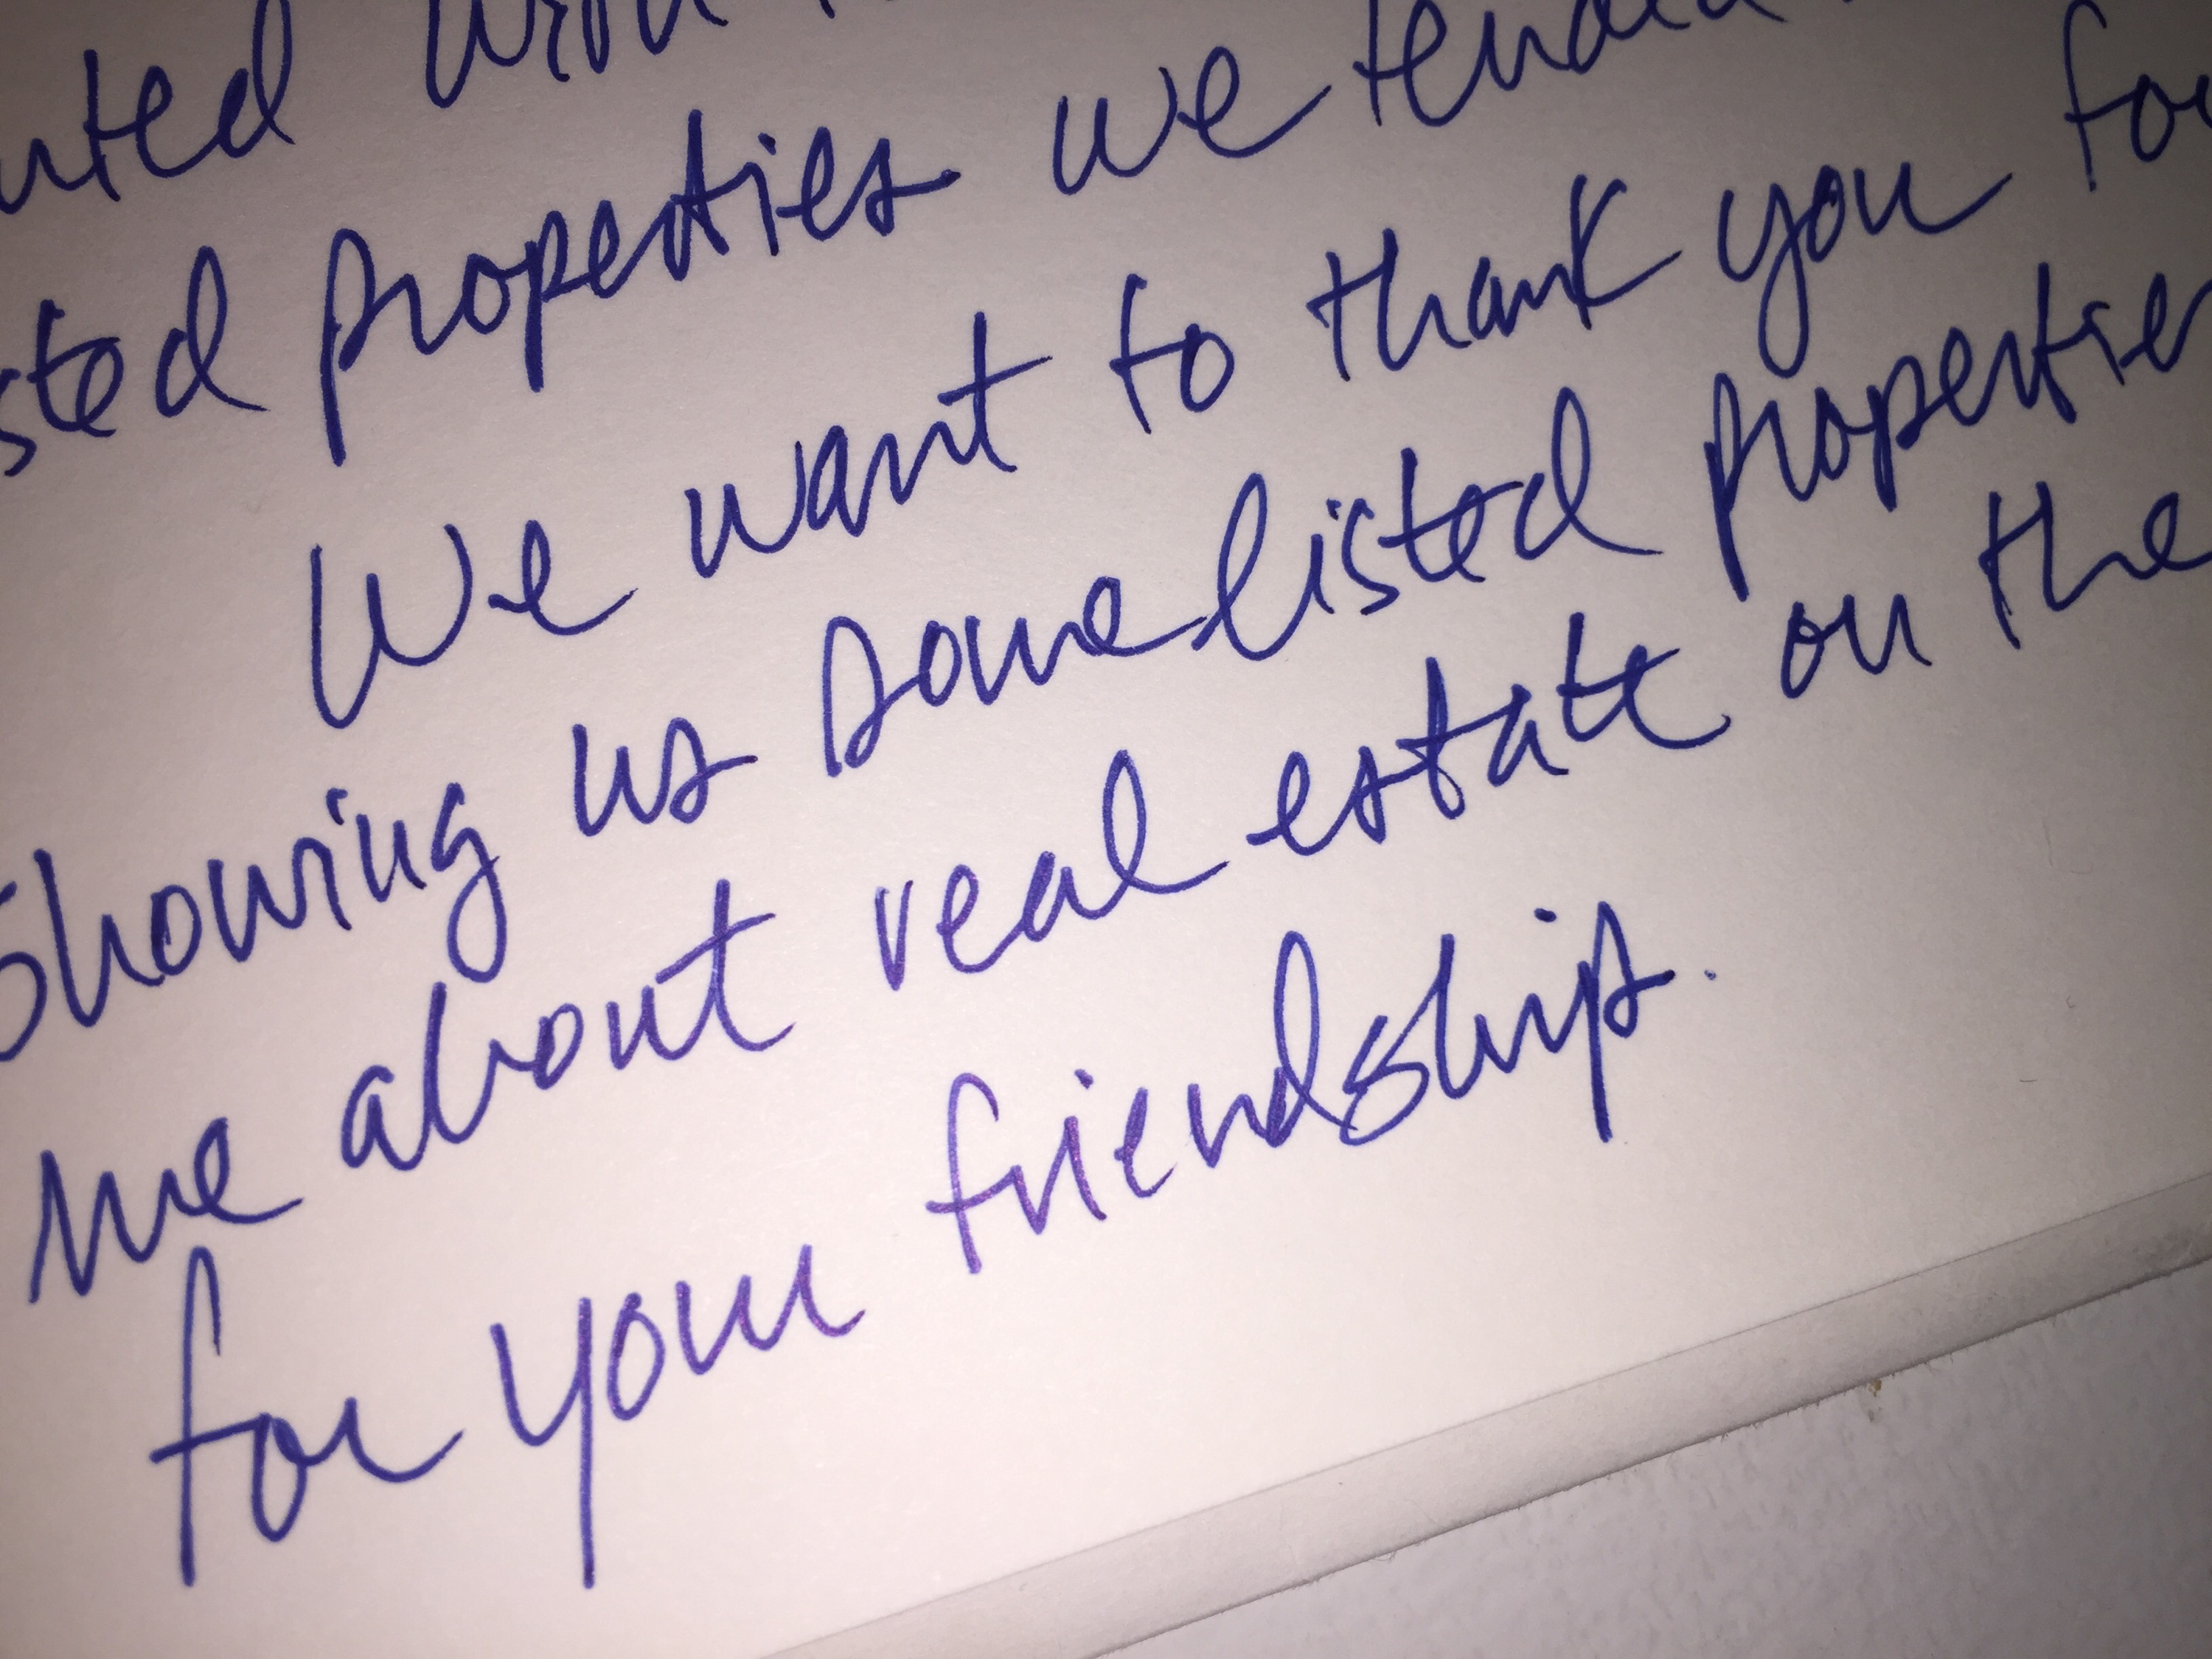 sted properties we
We want to thank you for
Showing us some listed properties
me about real estate on the
for your friendship.